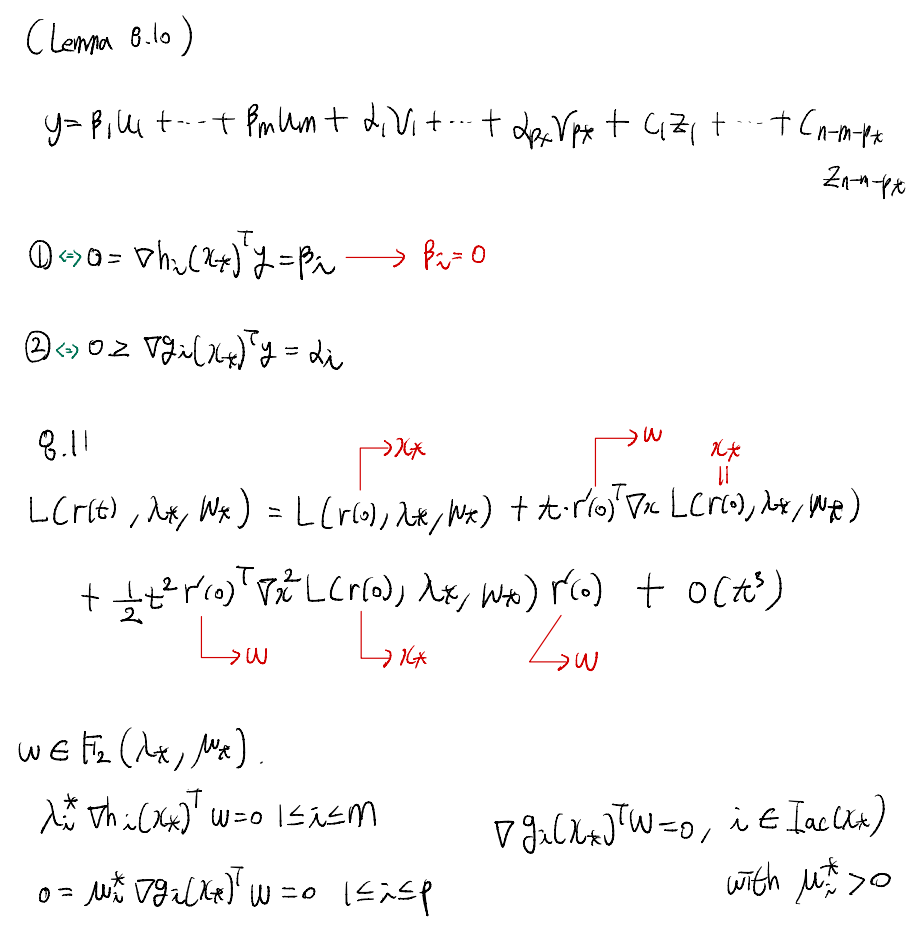 (Lemma 8.10)
y = β₁u₁ + ··· + βₘuₘ + α₁v₁ + ··· + α_{p*}v_{p*} + c₁z₁ + ··· + c_{n-m-p*}
z_{n-m-p*}
① <=> 0 = ∇hᵢ(x*)ᵀy = βᵢ → βᵢ = 0
② <=> 0 ≥ ∇gᵢ(x*)ᵀy = αᵢ
8.11
→ x* → w x*
L(r(t), λ*, μ*) = L(r(0), λ*, μ*) + t·r'(0)ᵀ∇x L(r(0), λ*, μ*)
+ 1/2 t² r'(0)ᵀ ∇x² L(r(0), λ*, μ*) r'(0) + O(t³)
→ w → x* → w
w ∈ F₂(λ*, μ*).
λᵢ* ∇hᵢ(x*)ᵀ w = 0 1 ≤ i ≤ m
∇gᵢ(x*)ᵀw = 0, i ∈ Iac(x*)
with μᵢ* > 0
0 = μᵢ* ∇gᵢ(x*)ᵀ w = 0 1 ≤ i ≤ p